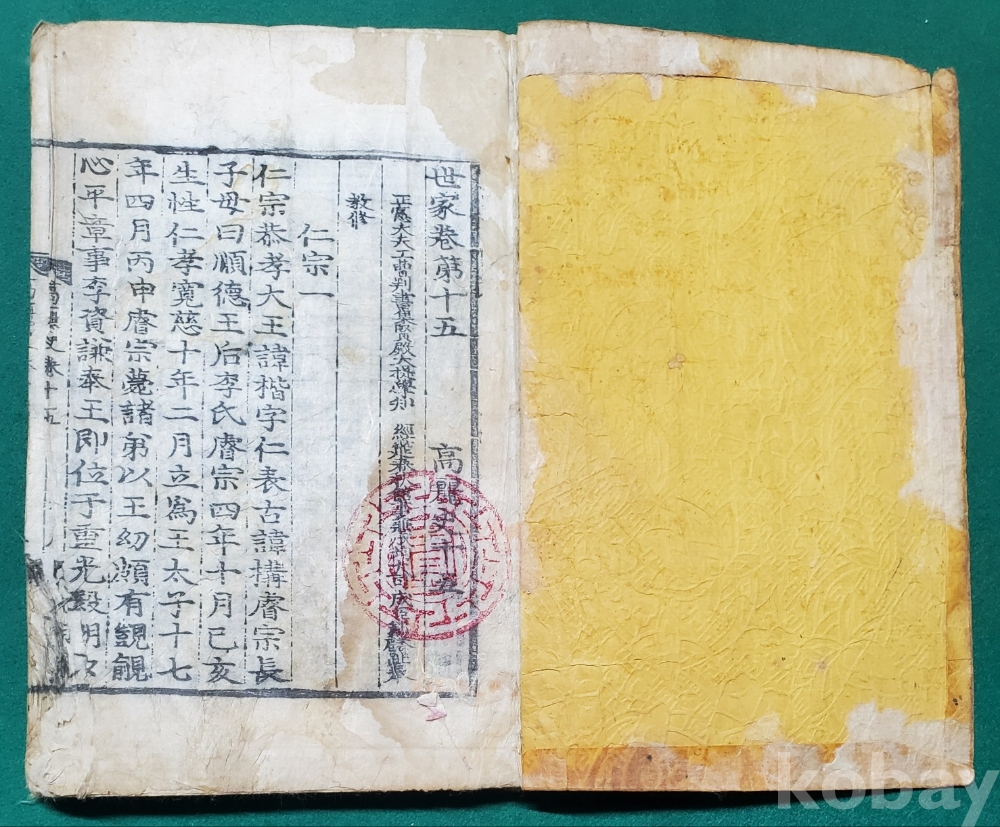 世家卷第十五 高麗史十五
正憲大夫工曹判書集賢殿大提學知 經筵春秋館事兼成均大司成臣鄭麟趾奉
教修
仁宗一
仁宗恭孝大王諱楷字仁表古諱構睿宗長
子母曰順德王后李氏睿宗四年十月己亥
生性仁孝寬慈十年二月立爲王太子十七
年四月丙申睿宗薨諸弟以王幼頗有覬覦
心平章事李資謙奉王即位于重光殿
高麗史卷十五
kobay